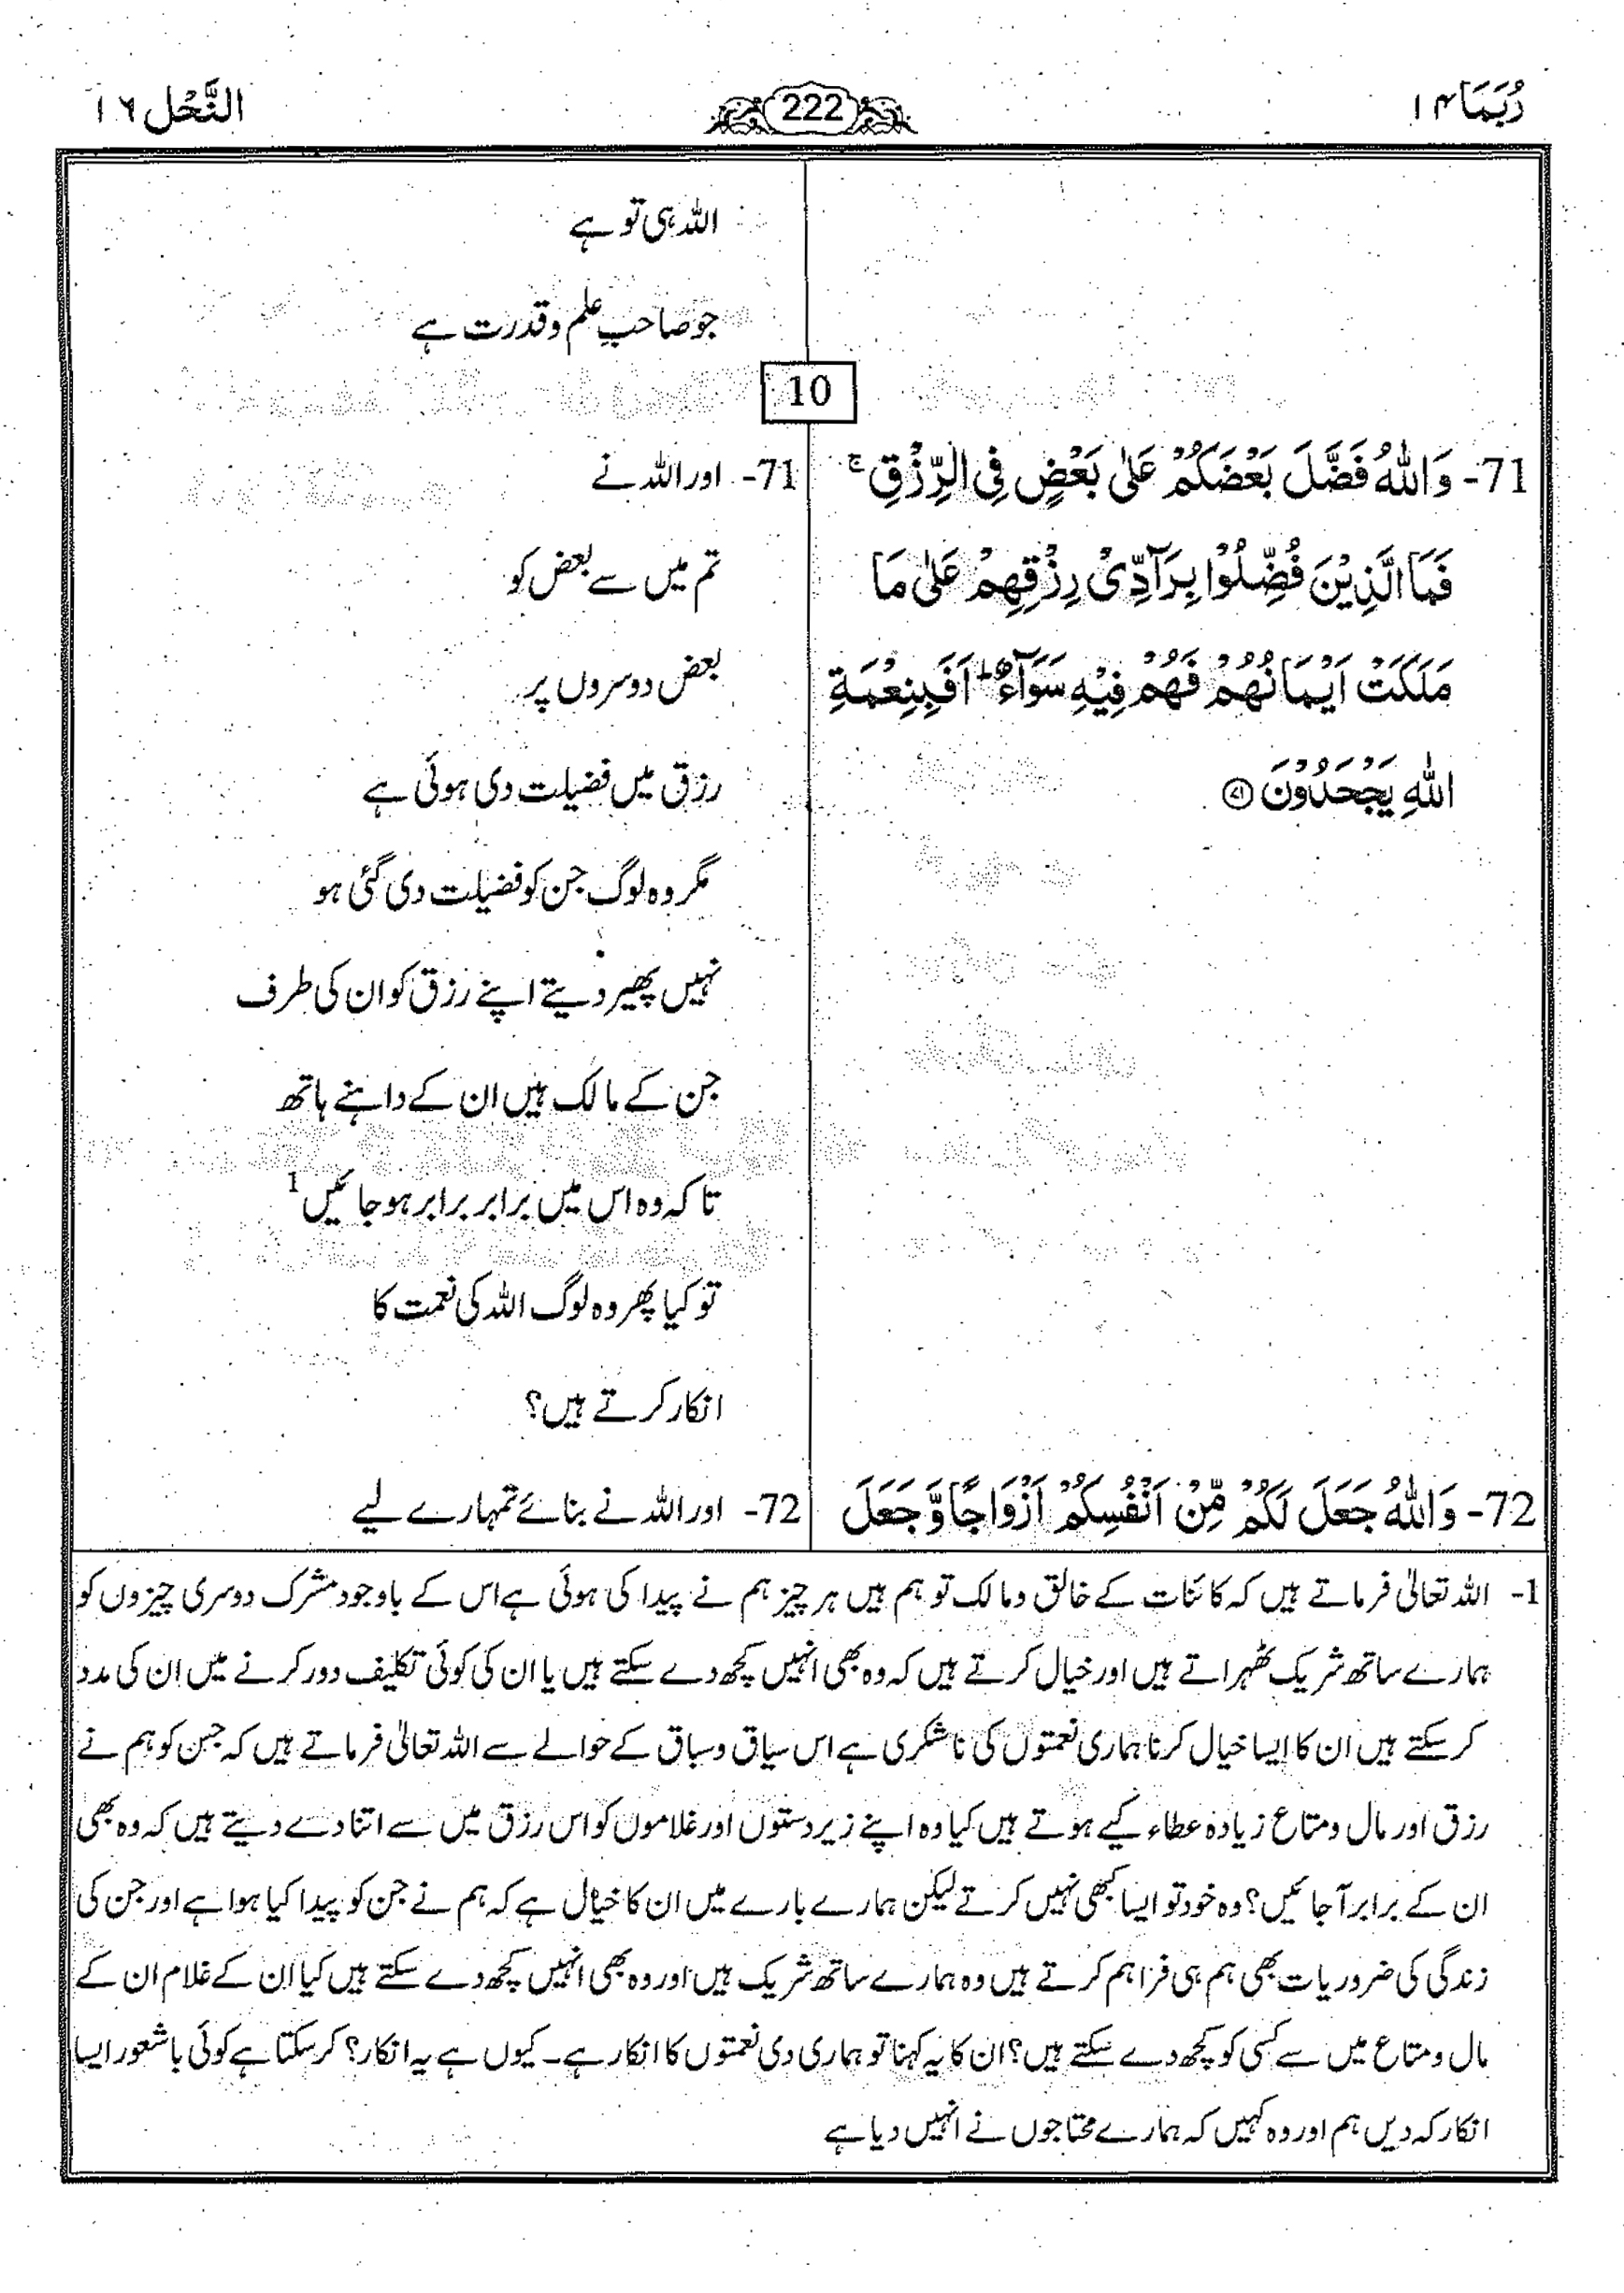 رُبَمَا ۱۴
222
النَّحْل ۱۶
اللہ ہی تو ہے
جو صاحبِ علم و قدرت ہے
10
71- وَاللّٰهُ فَضَّلَ بَعْضَكُمْ عَلٰى بَعْضٍ فِى الرِّزْقِ ۚ
فَمَا الَّذِيْنَ فُضِّلُوْا بِرَآدِّىْ رِزْقِهِمْ عَلٰى مَا
مَلَكَتْ اَيْمَانُهُمْ فَهُمْ فِيْهِ سَوَآءٌ ؕ اَفَبِنِعْمَةِ
اللّٰهِ يَجْحَدُوْنَ ۷۱
71- اور اللہ نے
تم میں سے بعض کو
بعض دوسروں پر
رزق میں فضیلت دی ہوئی ہے
مگر وہ لوگ جن کو فضیلت دی گئی ہو
نہیں پھیر دیتے اپنے رزق کو ان کی طرف
جن کے مالک ہیں ان کے داہنے ہاتھ
تاکہ وہ اس میں برابر برابر ہو جائیں 1
تو کیا پھر وہ لوگ اللہ کی نعمت کا
انکار کرتے ہیں؟
72- وَاللّٰهُ جَعَلَ لَكُمْ مِّنْ اَنْفُسِكُمْ اَزْوَاجًا وَّ جَعَلَ
72- اور اللہ نے بنائے تمہارے لیے
1- اللہ تعالیٰ فرماتے ہیں کہ کائنات کے خالق و مالک تو ہم ہیں ہر چیز ہم نے پیدا کی ہوئی ہے اس کے باوجود مشرک دوسری چیزوں کو
ہمارے ساتھ شریک ٹھہراتے ہیں اور خیال کرتے ہیں کہ وہ بھی انہیں کچھ دے سکتے ہیں یا ان کی کوئی تکلیف دور کرنے میں ان کی مدد
کر سکتے ہیں ان کا ایسا خیال کرنا ہماری نعمتوں کی ناشکری ہے اس سیاق و سباق کے حوالے سے اللہ تعالیٰ فرماتے ہیں کہ جن کو ہم نے
رزق اور مال و متاع زیادہ عطاء کیے ہوتے ہیں کیا وہ اپنے زیر دستوں اور غلاموں کو اس رزق میں سے اتنا دے دیتے ہیں کہ وہ بھی
ان کے برابر آ جائیں؟ وہ خود تو ایسا کبھی نہیں کرتے لیکن ہمارے بارے میں ان کا خیال ہے کہ ہم نے جن کو پیدا کیا ہوا ہے اور جن کی
زندگی کی ضروریات بھی ہم ہی فراہم کرتے ہیں وہ ہمارے ساتھ شریک ہیں اور وہ بھی انہیں کچھ دے سکتے ہیں کیا ان کے غلام ان کے
مال و متاع میں سے کسی کو کچھ دے سکتے ہیں؟ ان کا یہ کہنا تو ہماری دی نعمتوں کا انکار ہے۔ کیوں ہے یہ انکار؟ کر سکتا ہے کوئی باشعور ایسا
انکار کہ دیں ہم اور وہ کہیں کہ ہمارے محتاجوں نے انہیں دیا ہے